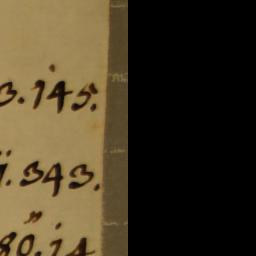 3.145.
1.343.
80.14